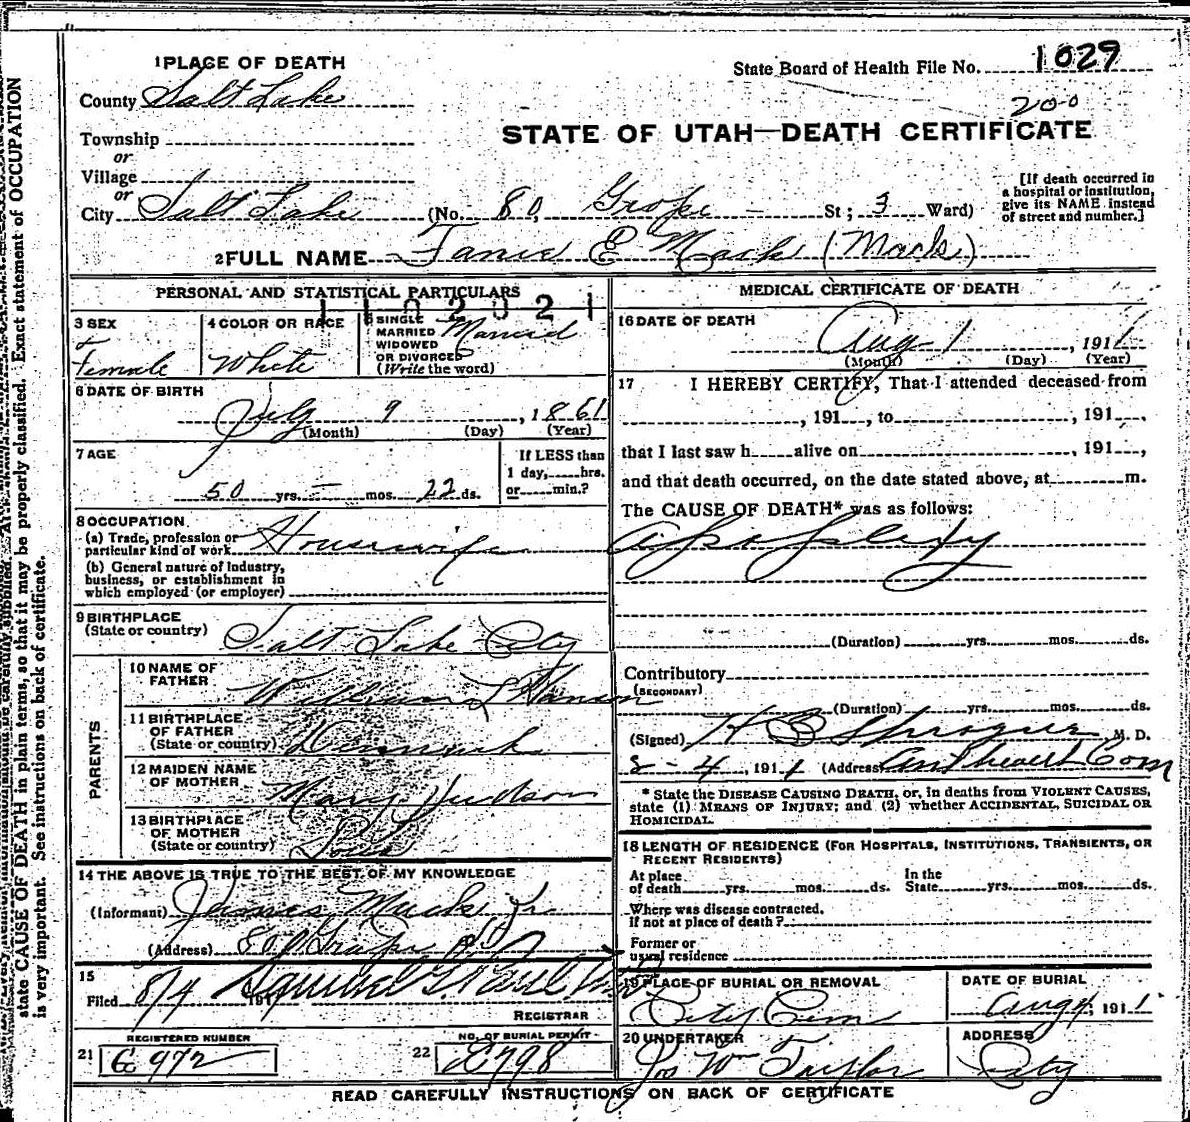 1 PLACE OF DEATH
State Board of Health File No. 1029
County Salt Lake
200
STATE OF UTAH—DEATH CERTIFICATE
Township
or
Village
or
City Salt Lake (No. 80 Grape St; 3 Ward)
[If death occurred in
a hospital or institution,
give its NAME instead
of street and number.]
2 FULL NAME E Mack (Mack)
PERSONAL AND STATISTICAL PARTICULARS
3 SEX
Female
4 COLOR OR RACE
White
SINGLE
MARRIED
WIDOWED
OR DIVORCED
(Write the word)
Married
6 DATE OF BIRTH
July 9, 1861
(Month) (Day) (Year)
7 AGE
50 yrs. — mos. 22 ds.
If LESS than
1 day, hrs.
or min.?
8 OCCUPATION
(a) Trade, profession or
particular kind of work Housewife
(b) General nature of industry,
business, or establishment in
which employed (or employer)
9 BIRTHPLACE
(State or country) Salt Lake City
PARENTS
10 NAME OF
FATHER William L Hanson
11 BIRTHPLACE
OF FATHER
(State or country) Denmark
12 MAIDEN NAME
OF MOTHER Mary Hudson
13 BIRTHPLACE
OF MOTHER
(State or country)
14 THE ABOVE IS TRUE TO THE BEST OF MY KNOWLEDGE
(Informant) James Mack Jr.
(Address) Grape St
15
Filed 8/4 191 Samuel G. Paul
REGISTRAR
REGISTERED NUMBER
21 972
NO. OF BURIAL PERMIT
22 E798
MEDICAL CERTIFICATE OF DEATH
16 DATE OF DEATH
Aug 1, 1911
(Month) (Day) (Year)
17 I HEREBY CERTIFY, That I attended deceased from
, 191 , to , 191 ,
that I last saw h alive on , 191 ,
and that death occurred, on the date stated above, at m.
The CAUSE OF DEATH* was as follows:
Apoplexy
(Duration) yrs. mos. ds.
Contributory
(SECONDARY)
(Duration) yrs. mos. ds.
(Signed) H B Sprague M. D.
8-4, 1911 (Address) Com
* State the DISEASE CAUSING DEATH, or, in deaths from VIOLENT CAUSES,
state (1) MEANS OF INJURY; and (2) whether ACCIDENTAL, SUICIDAL OR
HOMICIDAL.
18 LENGTH OF RESIDENCE (FOR HOSPITALS, INSTITUTIONS, TRANSIENTS, OR
RECENT RESIDENTS)
At place
of death yrs. mos. ds.
In the
State yrs. mos. ds.
Where was disease contracted,
if not at place of death?
Former or
usual residence
19 PLACE OF BURIAL OR REMOVAL
City Cem
DATE OF BURIAL
Aug 4, 1911
20 UNDERTAKER
Jos W Taylor
ADDRESS
City
READ CAREFULLY INSTRUCTIONS ON BACK OF CERTIFICATE
state CAUSE OF DEATH in plain terms, so that it may be properly classified. Exact statement of OCCUPATION
is very important. See instructions on back of certificate.